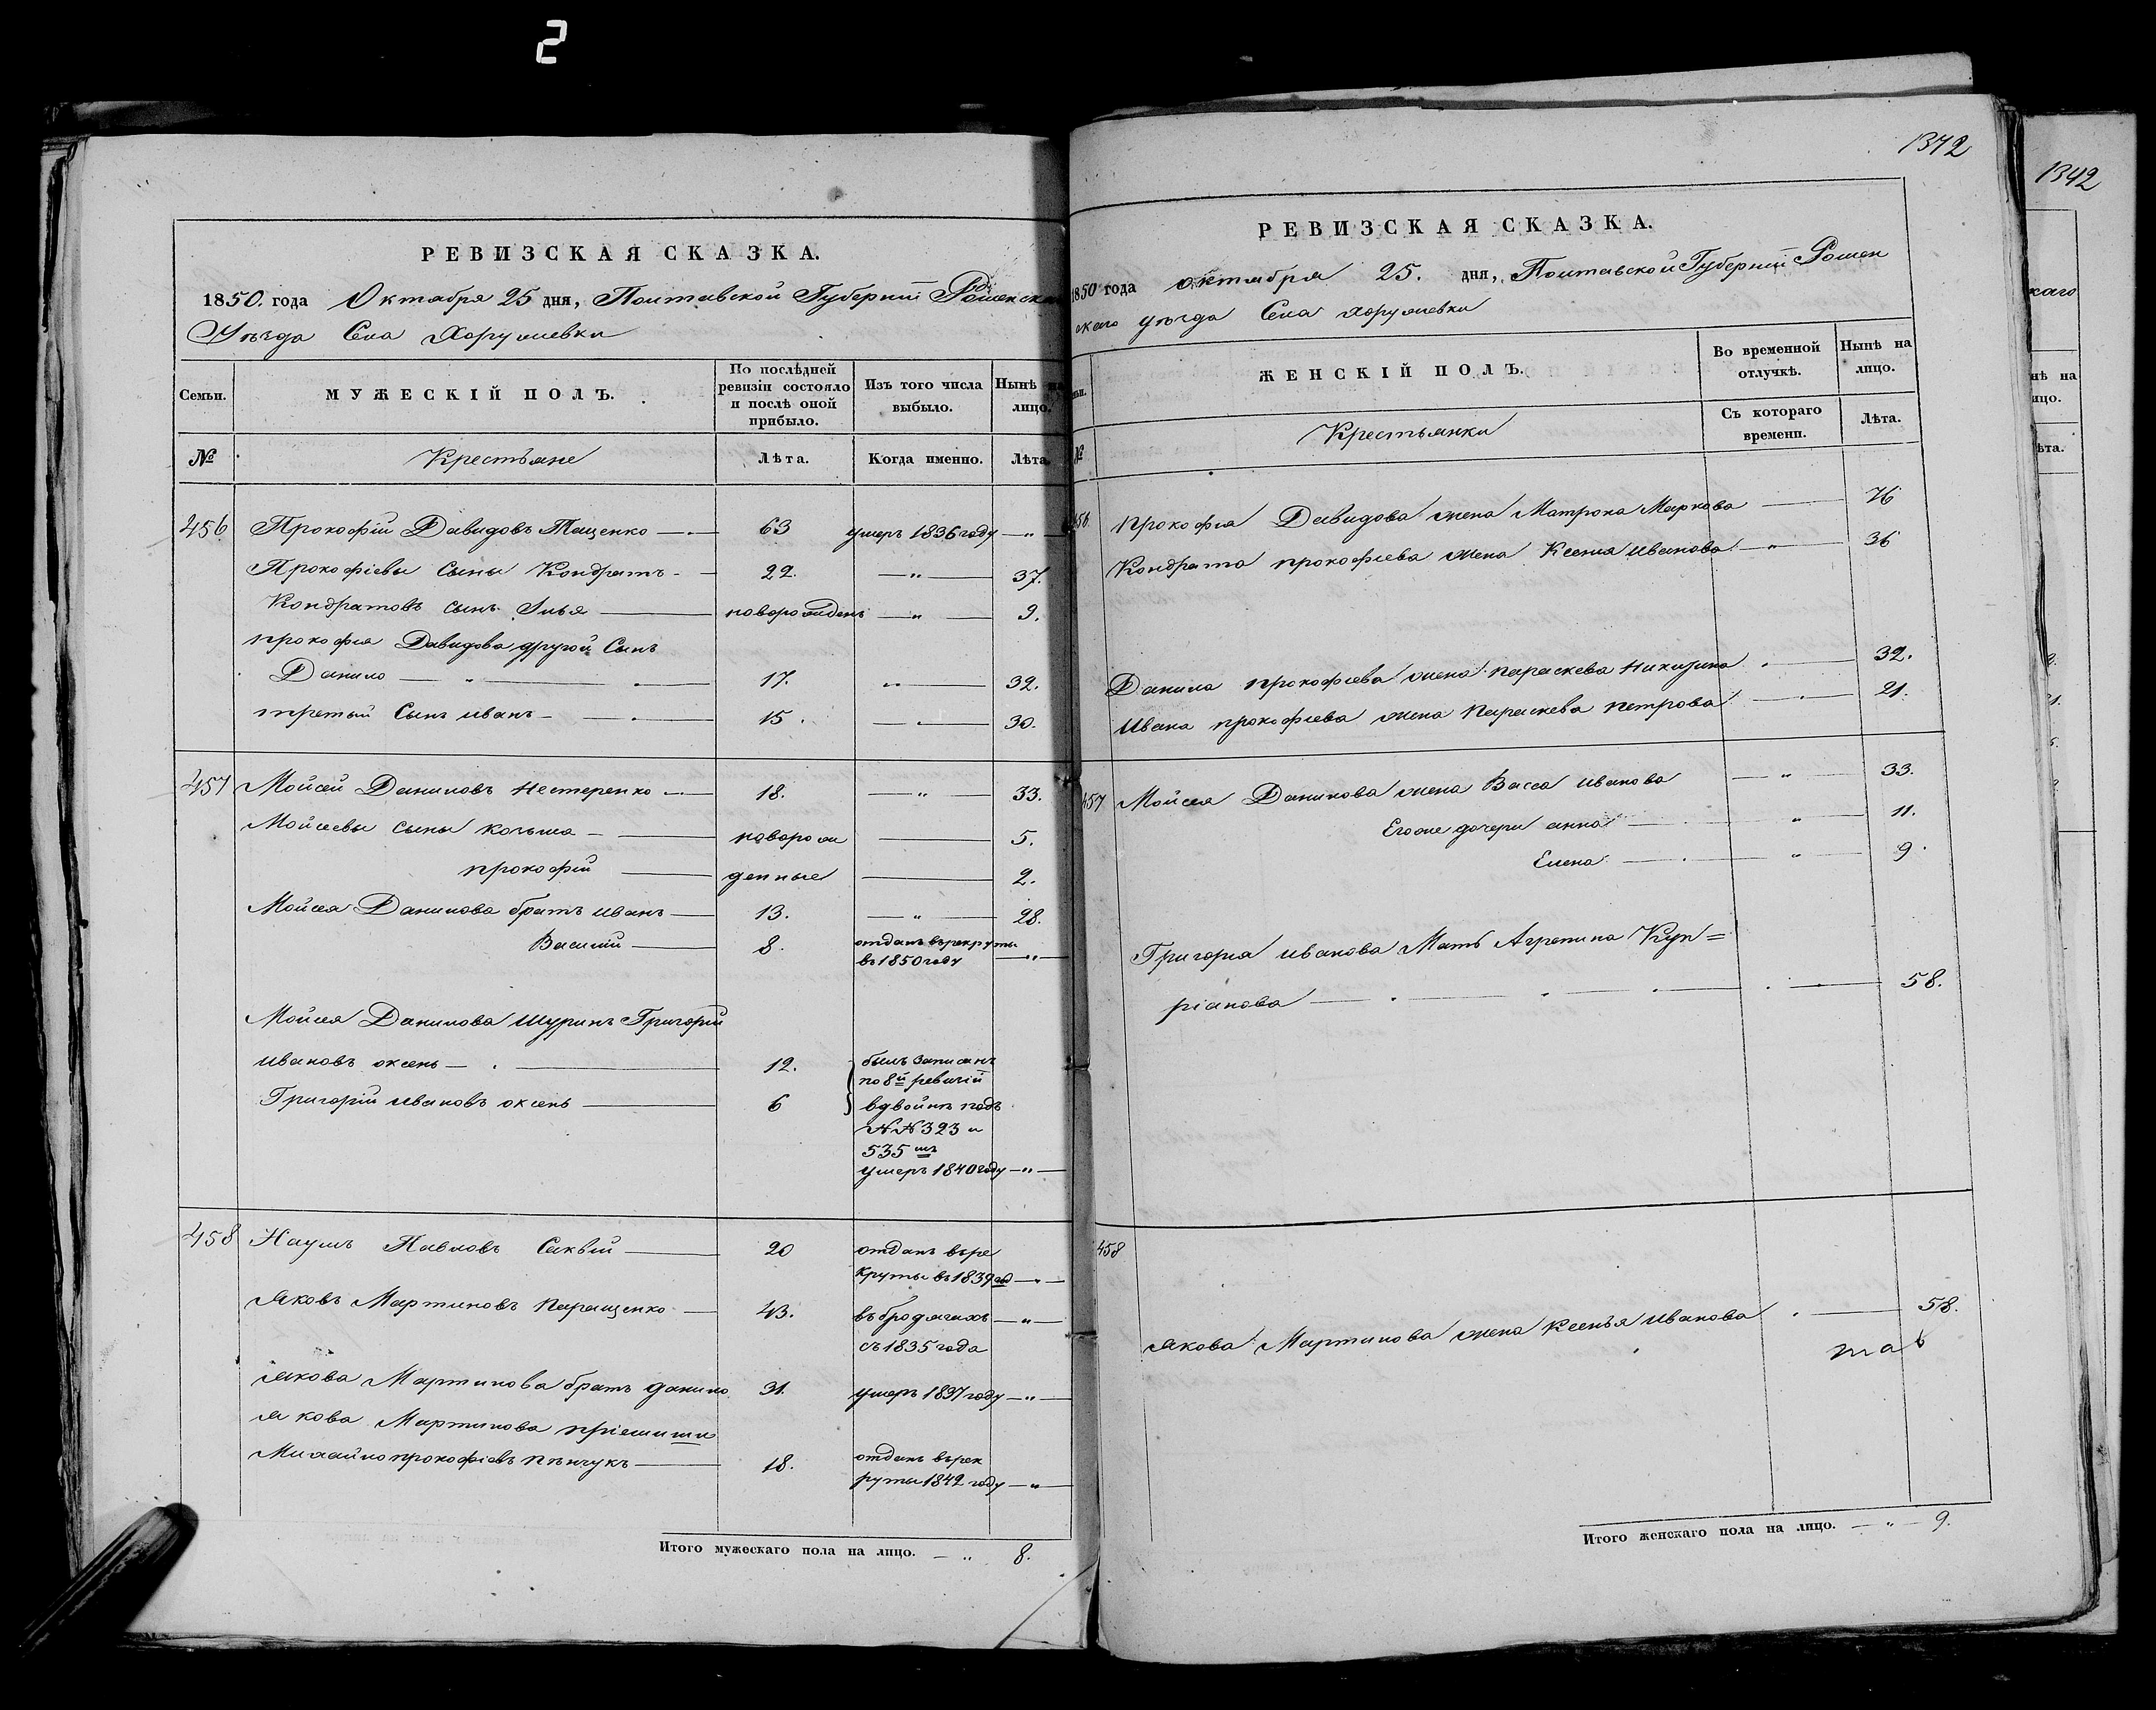 2
РЕВИЗСКАЯ СКАЗКА.
1850. года Октября 25 дня, Полтавской Губерніи Роменскаго
Уѣзда Села Хоружевки
Семьи.
МУЖЕСКІЙ ПОЛЪ.
По послѣдней ревизіи состояло и послѣ оной прибыло.
Изъ того числа выбыло.
Нынѣ на лицо.
№
Крестьяне
Лѣта.
Когда именно.
Лѣта.
456 Прокофій Давидовъ Тащенко — 63 умеръ 1836 году — " —
Прокофіевы сыны Кондратъ — 22. — " — 37.
Кондратовъ сынъ Илья — новорожденъ — " — 9.
Прокофія Давидова другой Сынъ
Данило — " — 17. " — 32.
третій Сынъ Иванъ — 15. — 30.
457 Мойсей Даниловъ Нестеренко — 18. — " — 33.
Мойсеевы сыны Козьма — новорож — 5.
Прокофій — денные — 2.
Мойсея Данилова братъ Иванъ — 13. — " — 28.
Василій — 8. отданъ въ рекруты
въ 1850 году — " —
Мойсея Данилова Шуринъ Григорій
Ивановъ Оксень — 12. былъ записанъ
по 8й ревизіи
Григорій Ивановъ Оксень — 6 вдвойнѣ подъ
№№ 323 и
535 мъ
умеръ 1840 году — " —
458 Наумъ Павловъ Саквій — 20 отданъ въ ре
круты въ 1839 год — " —
Яковъ Мартиновъ Паращенко — 43. въ бродягахъ — " —
съ 1835 года
Якова Мартинова братъ Данило 31. умеръ 1837 году — " —
Якова Мартинова пріемышъ
Михайло Прокофіевъ — 18. отданъ въ рек
руты 1842 году — " —
Итого мужескаго пола на лицо. — " 8.
1342
РЕВИЗСКАЯ СКАЗКА.
1850 года Октября 25. дня, Полтавской Губерніи Ромен
скаго Уѣзда Села Хоружевки
ЖЕНСКІЙ ПОЛЪ.
Во временной отлучкѣ.
Нынѣ на лицо.
№
Крестьянки
Съ котораго времени.
Лѣта.
456 Прокофія Давидова жена Матрона Маркова — 76
Кондрата Прокофіева жена Ксенія Иванова — " — 36
Данила Прокофіева жена Параскева Никитина — 32.
Ивана Прокофіева жена Параскева Петрова — 21.
457 Мойсея Данилова жена Васса Иванова — " — 33.
Егоже дочери Анна — " — 11.
Елена — " — 9.
Григорія Иванова Мать Агрепина Куп=
ріанова — 58.
458
Якова Мартинова жена Ксенья Иванова — 58.
Итого женскаго пола на лицо. — " — 9.
1342